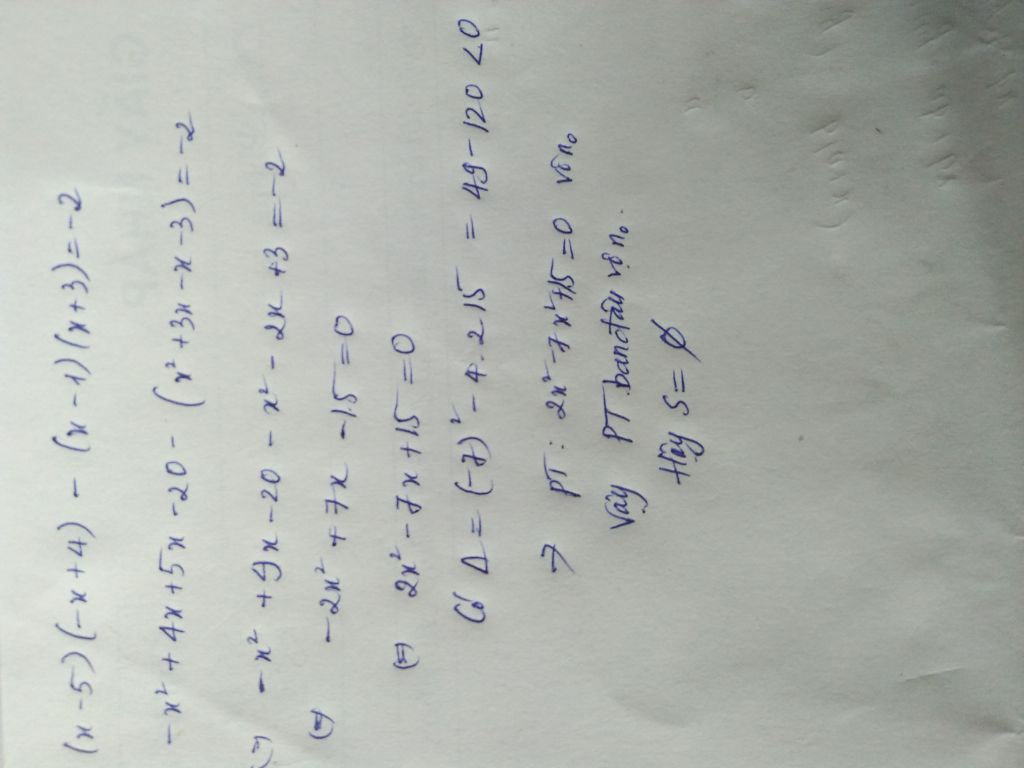 (x-5)(-x+4) - (x-1)(x+3) = -2
-x² + 4x + 5x - 20 - (x² + 3x - x - 3) = -2
(=) -x² + 9x - 20 - x² - 2x + 3 = -2
(=) -2x² + 7x - 15 = 0
(=) 2x² - 7x + 15 = 0
Có Δ = (-7)² - 4.2.15 = 49 - 120 < 0
→ PT: 2x² - 7x + 15 = 0 vô no
Vậy PT ban đầu vô no.
Hay S = ∅